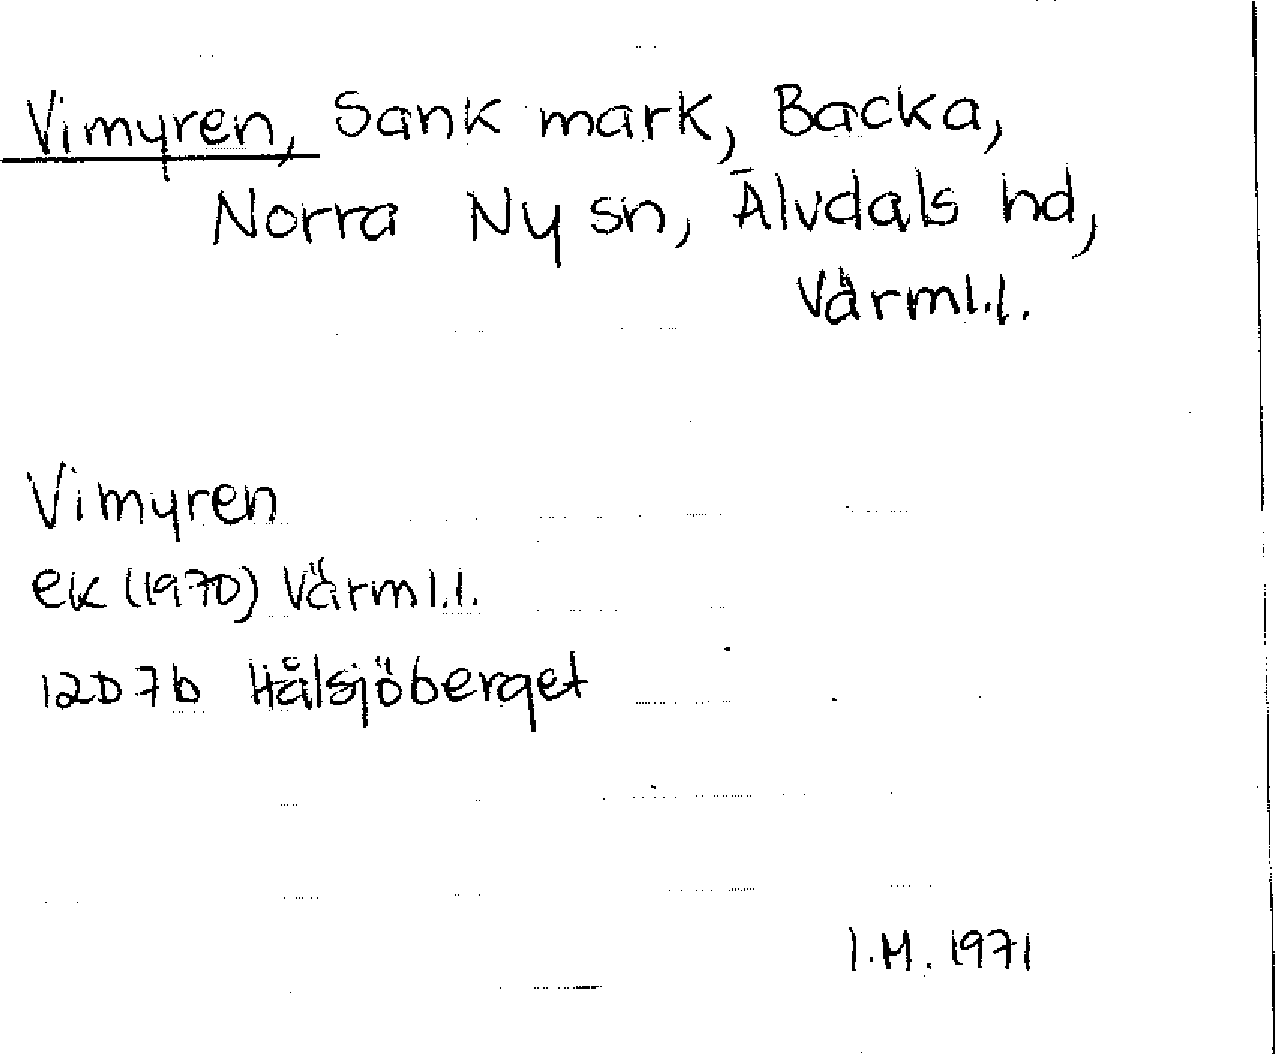 Vimyren, Sank mark, Backa,
Norra Ny sn, Älvdals hd,
Värml.l.
Vimyren
ek (1970) Värml.l.
12D 7b Hålsjöberget
I.M. 1971